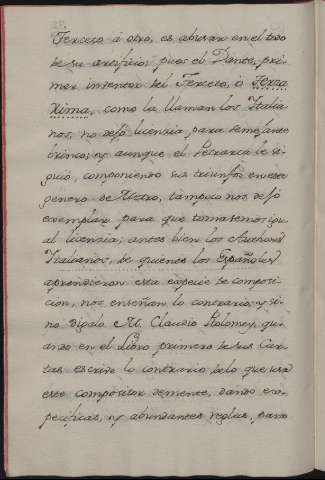 Terceto à otro, es abusar en el todo
de su artificio; pues el Dante, pri-
mer inventor del Terceto, ò Terza
Rima, como la llaman los Italia-
nos, no dejò licencia para semejante
brinco; y aunque el Petrarca le si-
guiò, componiendo sus triunfos en este
genero de Metro, tampoco nos dejò
exemplar para que tomasemos igu-
al licencia; antes bien los Authores
Italianos, de quienes los Españoles
aprendieron esta especie de composi-
cion, nos enseñan lo contrario; y si-
no digalo M. Claudio Ptolomey, qu-
ando en el Libro primero de sus Car-
tas escribe lo contrario de lo que usa
este compositor demente, dando es-
pecificas, y abundantes reglas, para